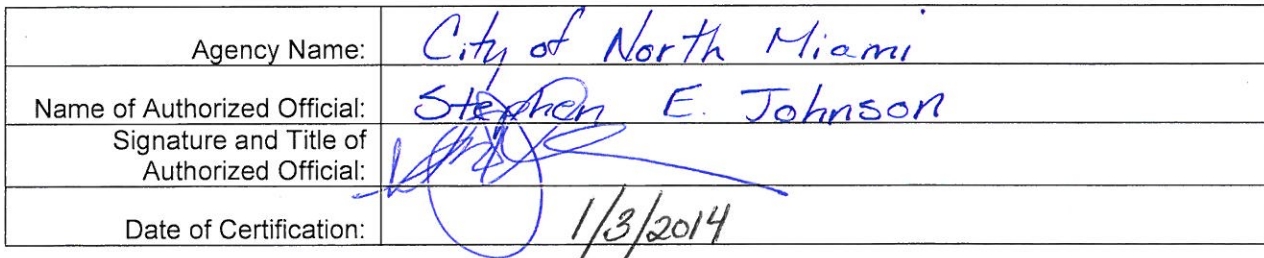 Agency Name: City of North Miami
Name of Authorized Official: Stephen E. Johnson
Signature and Title of
Authorized Official:
Date of Certification: 1/3/2014